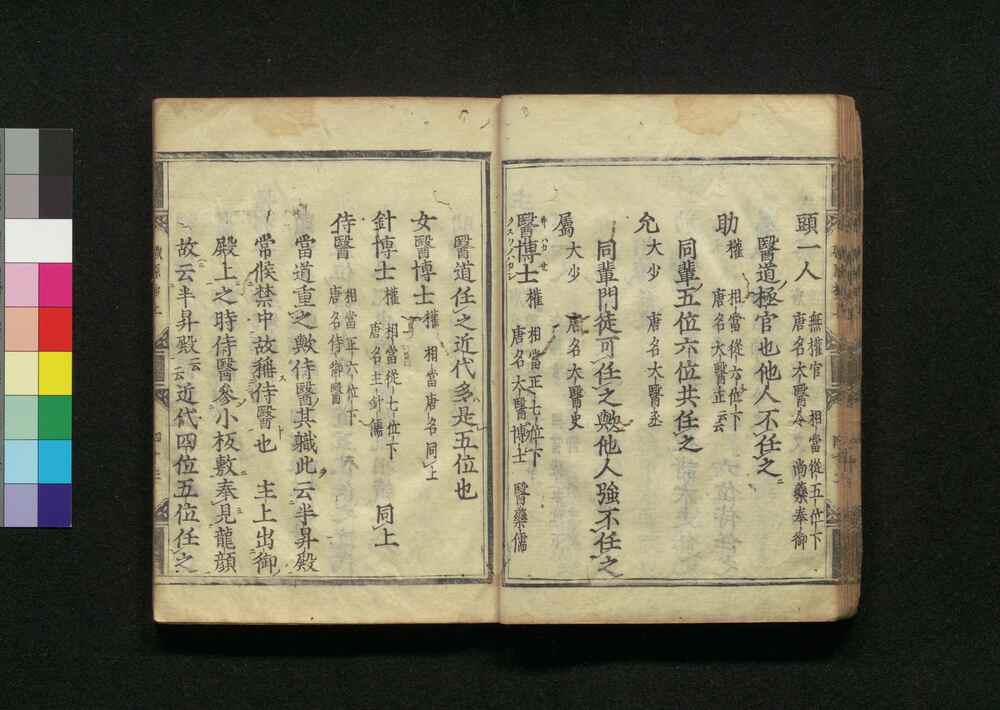 頭一人 無權官 相當從五位下
唐名大醫令 又尚藥奉御
醫道極官也他人不任之
助 權 相當從六位下
唐名大醫正云云
同輩五位六位共任之
允 大少 唐名大醫丞
同輩門徒可任之歟他人強不任之
屬 大少 唐名大醫史
醫博士 權 相當正七位下
唐名大醫博士 醫藥儒
醫道任之近代多是五位也
女醫博士 權 相當唐名同上
針博士 權 相當從七位下
唐名主針儒 同上
侍醫 相當正六位下
唐名侍御醫
當道重之歟侍醫其職此云半昇殿
常候禁中故稱侍醫也 主上出御
殿上之時侍醫參小板敷奉見龍顔
故云半昇殿云云近代四位五位任之